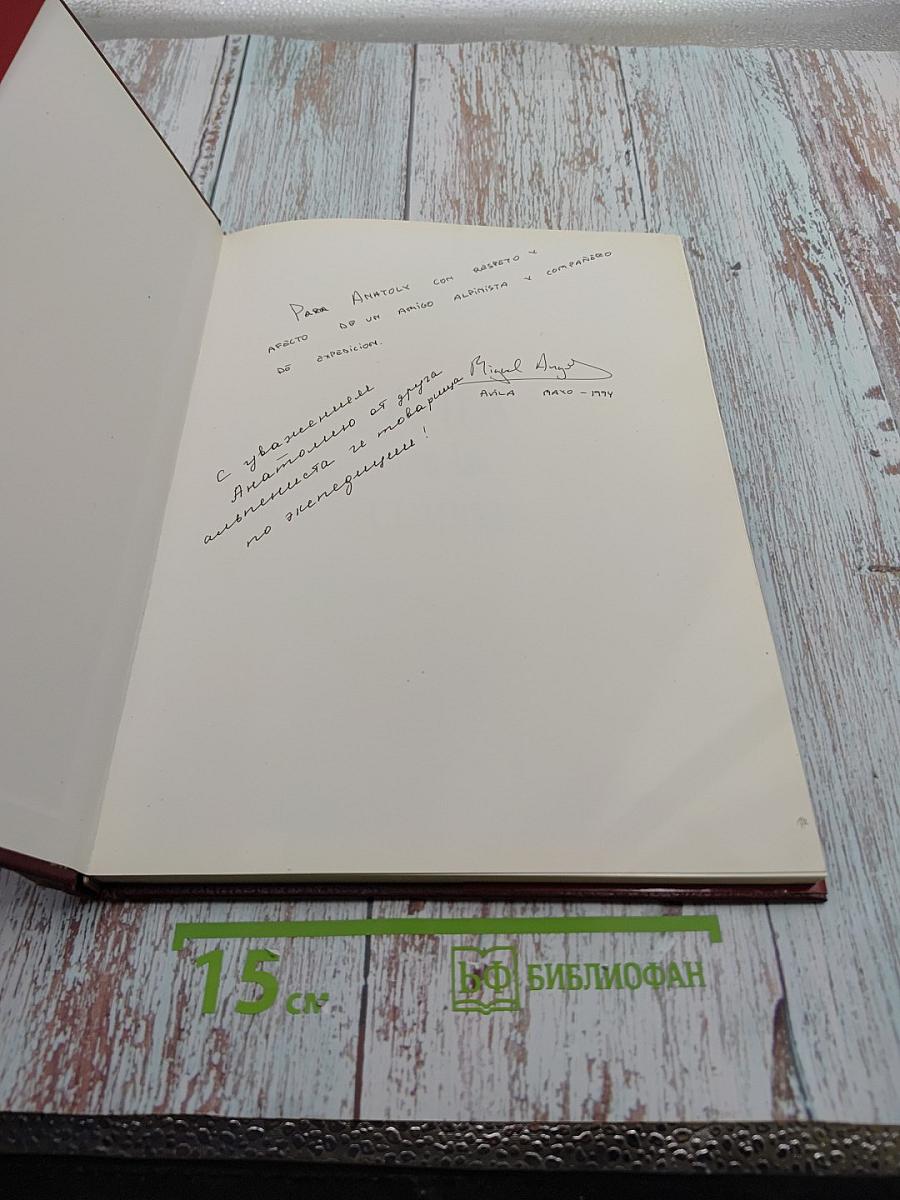 Para Anatoly con respeto y
afecto de un amigo alpinista y compañero
de expedicion.
Miguel Angel
Avila mayo - 1994
С уважением
Анатолию от друга
альпениста и товарища
по экспедиции!
15 см
БФ БИБЛИОФАН